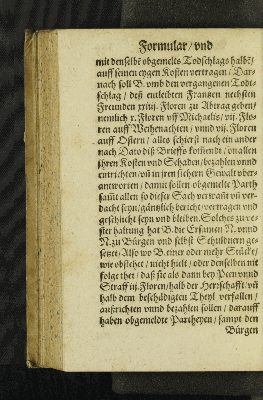 Formular / vnd
mit denselbē obgemelts Todschlags halb /
auff seinen eygen Kosten vertragen / Dar-
nach soll B. vmb den vergangenen Todt-
schlag / deß entleibten Franzen nechsten
Freunden xxiiij. Floren zu Abtrag geben /
nemlich x. Floren vff Michaelis / vij. Flo-
ren auff Weihenachten / vnnd vij. Floren
auff Ostern / alles schierst nach ein ander
nach Dato diß Brieffs kom̄endt / on allen
jhren Kosten vnd Schaden / bezahlen vnnd
entrichten / vn̄ in jren sichern Gewalt vber-
antworten / damit sollen obgemelte Parth
sam̄t allen so dieser Sach verwant vn̄ ver-
dacht seyn / gäntzlich bericht vertragen vnd
geschlicht seyn vnd bleiben. Solches zu ve-
ster haltung hat B. die Ersamen N. vnnd
N. zu Bürgen vnd selbst Schuldnern ge-
setzt / Also wo B. einer oder mehr Stück /
wie obstehet / nicht hielt / oder denselben nit
folge thet / daß sie als dann bey Peen vnnd
Straff iij. Floren / halb der Herrschafft / vn̄
halb dem beschädigten Theyl verfallen /
außrichten vnnd bezahlen sollen / darauff
haben obgemeldte Partheyen / sampt den
Bürgen